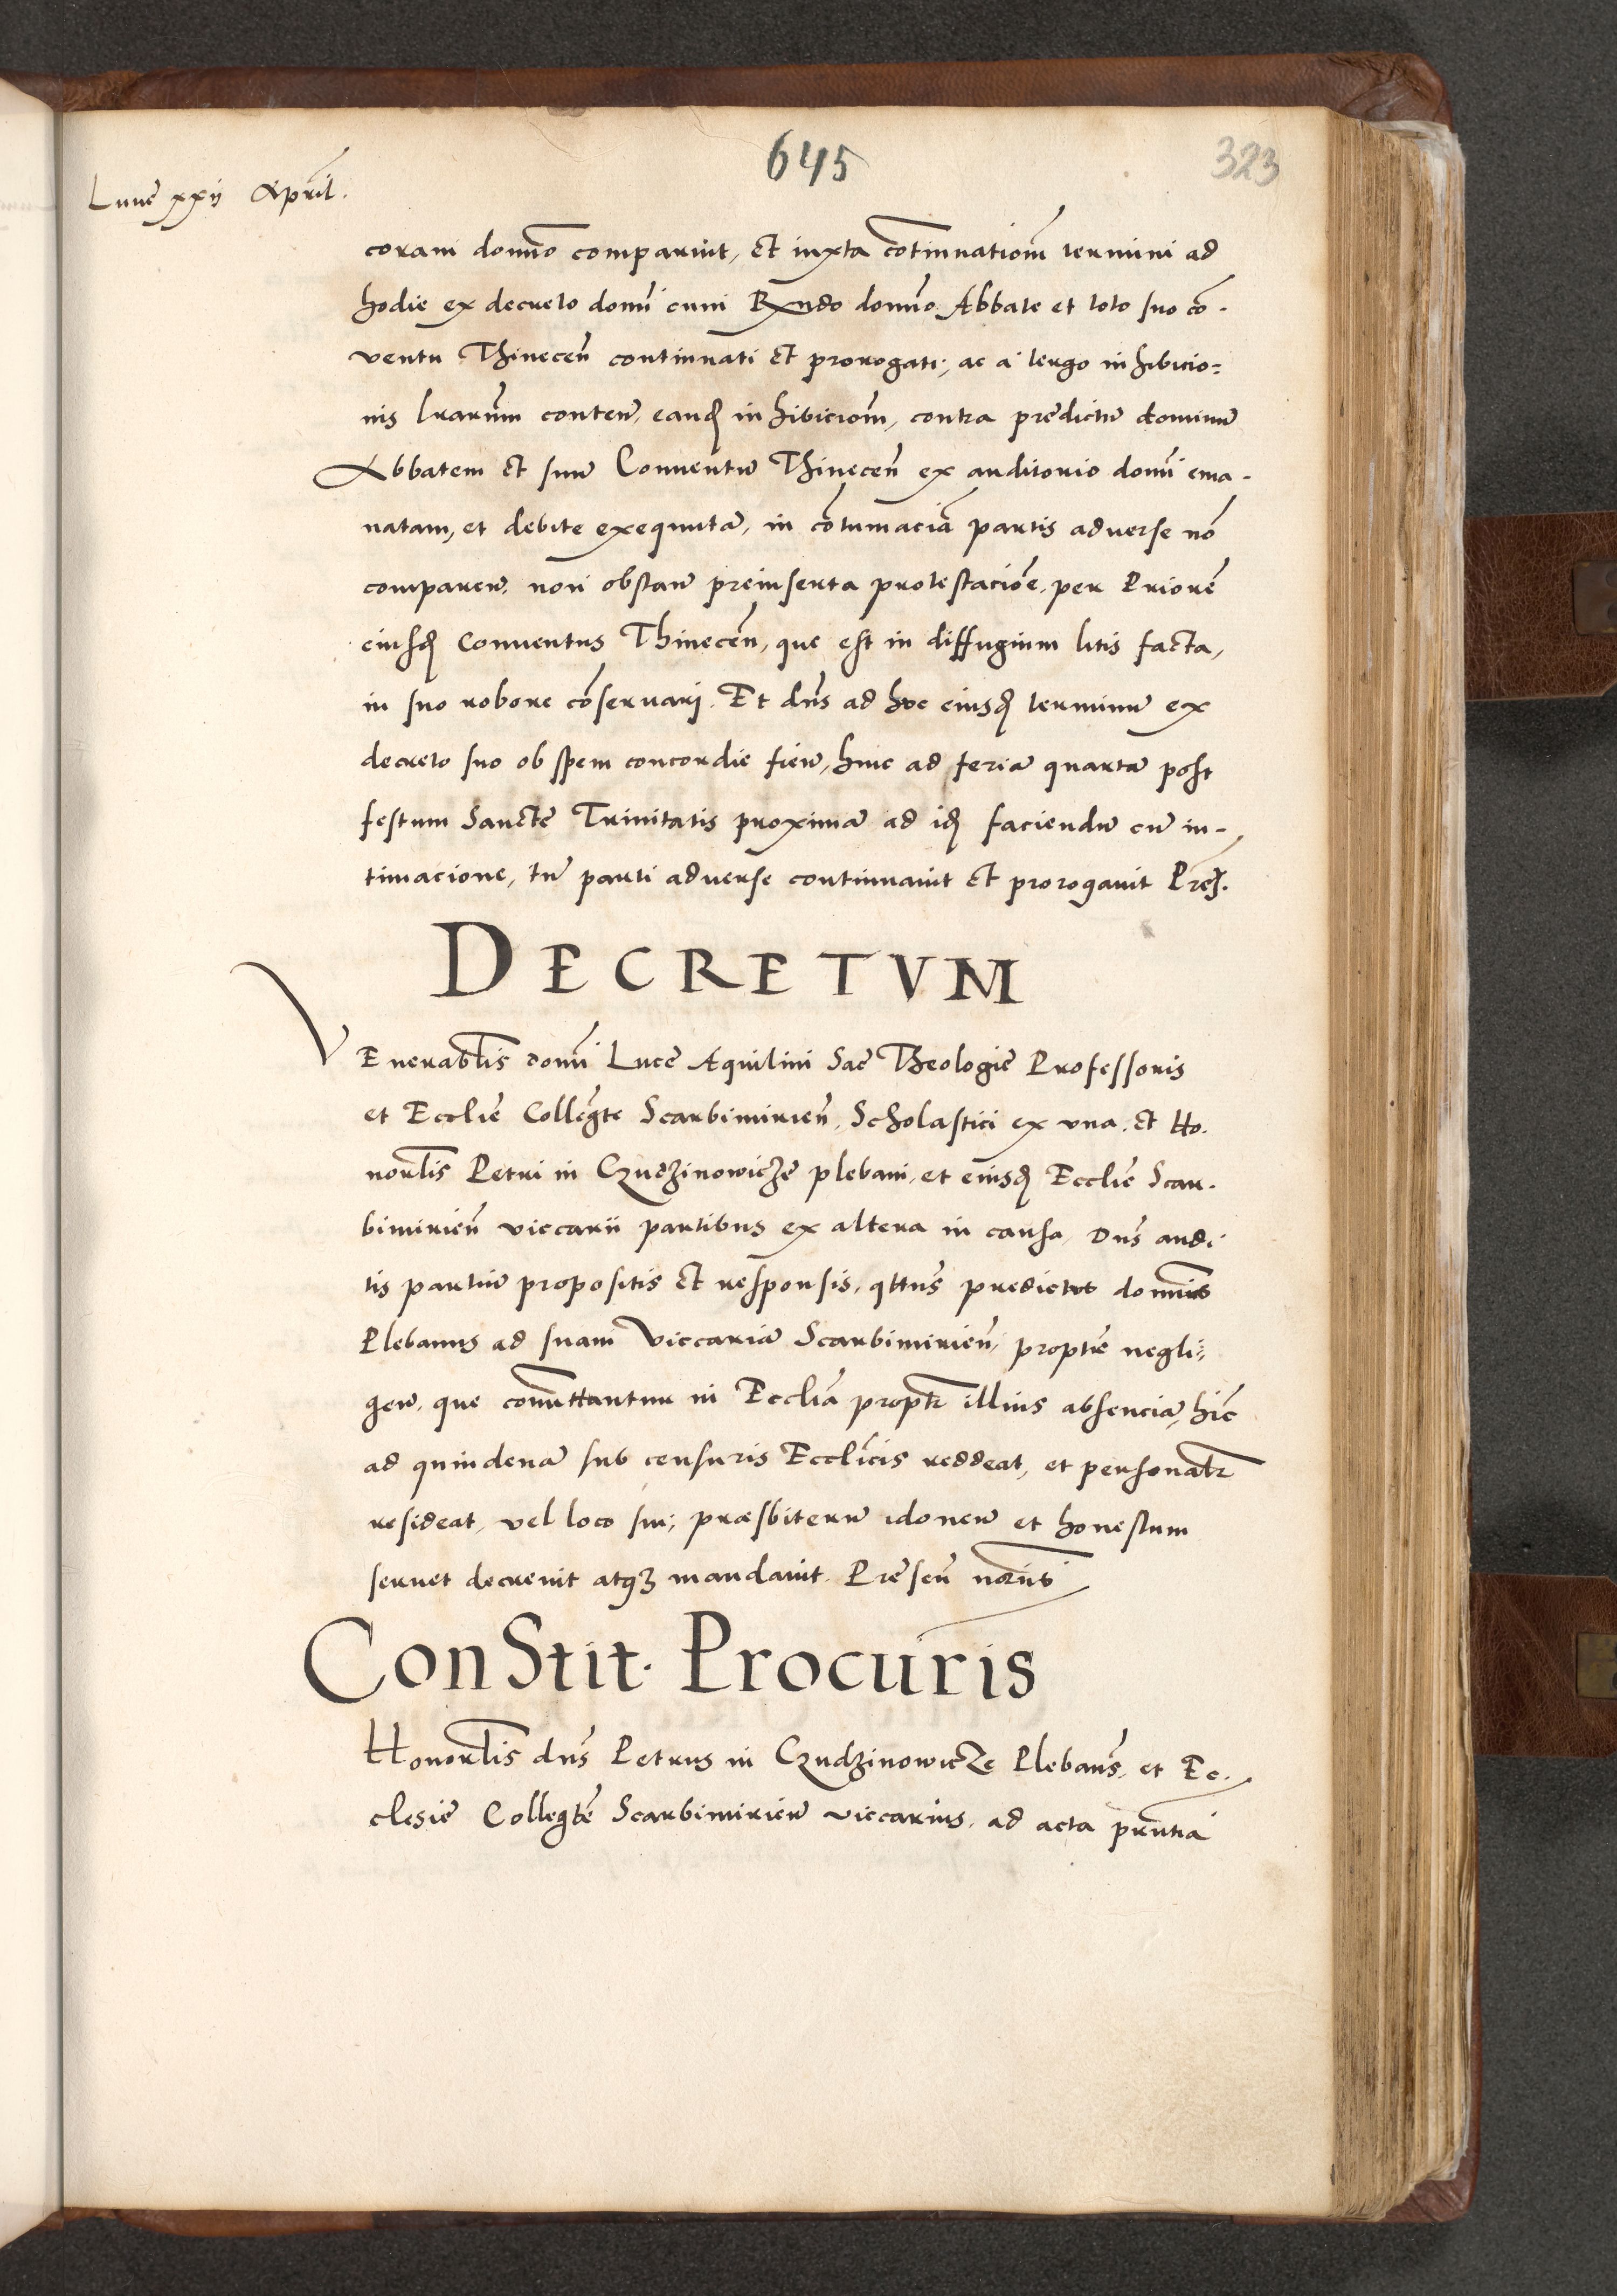 645
323
Lune xxij April.
coram domino comparuit, et iuxta cōtinuationem termini ad
hodie ex decreto domī cum Rndo domino Abbate et toto suo cō-
ventu Thinecen̄ continuati et prorogati, ac a tergo inhibicio=
nis lrarum conten̄, eandē inhibicionem, contra predictū dominū
Abbatem et suū Conventū Thinecen̄ ex auditorio domī ema-
natam, et debite exequutā, in cōtumaciā partis adverse nō
comparen̄, non obstan̄ preinserta protestaciōe, per Priorē
eiusdē Conventus Thinecen̄, que est in diffugium litis facta,
in suo robore cōservari. Et dns ad hoc eiusdē terminū ex
decreto suo ob spem concordie fien̄, hinc ad feriā quartā post
festum Sancte Trinitatis proximā ad idē faciendū cū in-
timacione, tn̄ parti adverse continuavit et prorogavit Pren̄.
DECRETVM
VEnerablis domī Luce Aquilini Sac Theologie Professoris
et Ecclie Collegte Scarbimirien̄, Scholastici ex una, et Ho-
norlis Petri in Czudzinowicze plebani, et eiusdē Ecclie Scar-
bimirien̄ viccarii partibus ex altera in causa, Dns audi-
tis partiū propositis et responsis, qttns predictus dominus
Plebanus ad suam Viccariā Scarbimirien̄, propter negli-
gen̄, que comittantur in Ecclia proptr illius absenciā, hinc
ad quindenā sub censuris Ecclicis reddeat, et personalr
resideat, vel loco sui, præsbiterū idoneū et honestum
servet decrevit atqz mandavit. Presen̄ norijs
ConStit. Procuris
Honorlis dns Petrus in Czudzinowicze Plebans, et Ec-
clesie Collegte Scarbimirien̄ viccarius, ad acta prntia